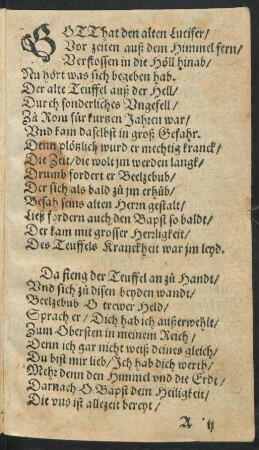 GOTT hat den alten Lucifer/
Vor zeiten auß dem Himmel fern/
Verstossen in die Höll hinab/
Nu hört was sich begeben hab.
Der alte Teuffel auß der Hell/
Durch sonderliches Vngefell/
Zů Rom für kurtzen Jahren war/
Vnd kam daselbst in groß Gefahr.
Denn plötzlich wurd er mechtig kranck/
Die Zeit/die wolt jm werden langk/
Drumb fordert er Beelzebub/
Der sich als bald zů jm erhůb/
Besah seins alten Herrn gestalt/
Ließ fordern auch den Bapst so baldt/
Der kam mit grosser Herzligkeit/
Des Teuffels Kranckheit war jm leyd.
Da fieng der Teuffel an zů Handt/
Vnd sich zů disen beyden wandt/
Beelzebub O trewer Held/
Sprach er/Dich hab ich außerwehlt/
Zum Obersten in meinem Reich/
Denn ich gar nicht weiß deines gleich/
Du bist mir lieb/Jch hab dich werth/
Mehr denn den Himmel vnd die Erdt/
Darnach O Bapst dein Heiligkeit/
Die vns ist allezeit bereyt/
A ij